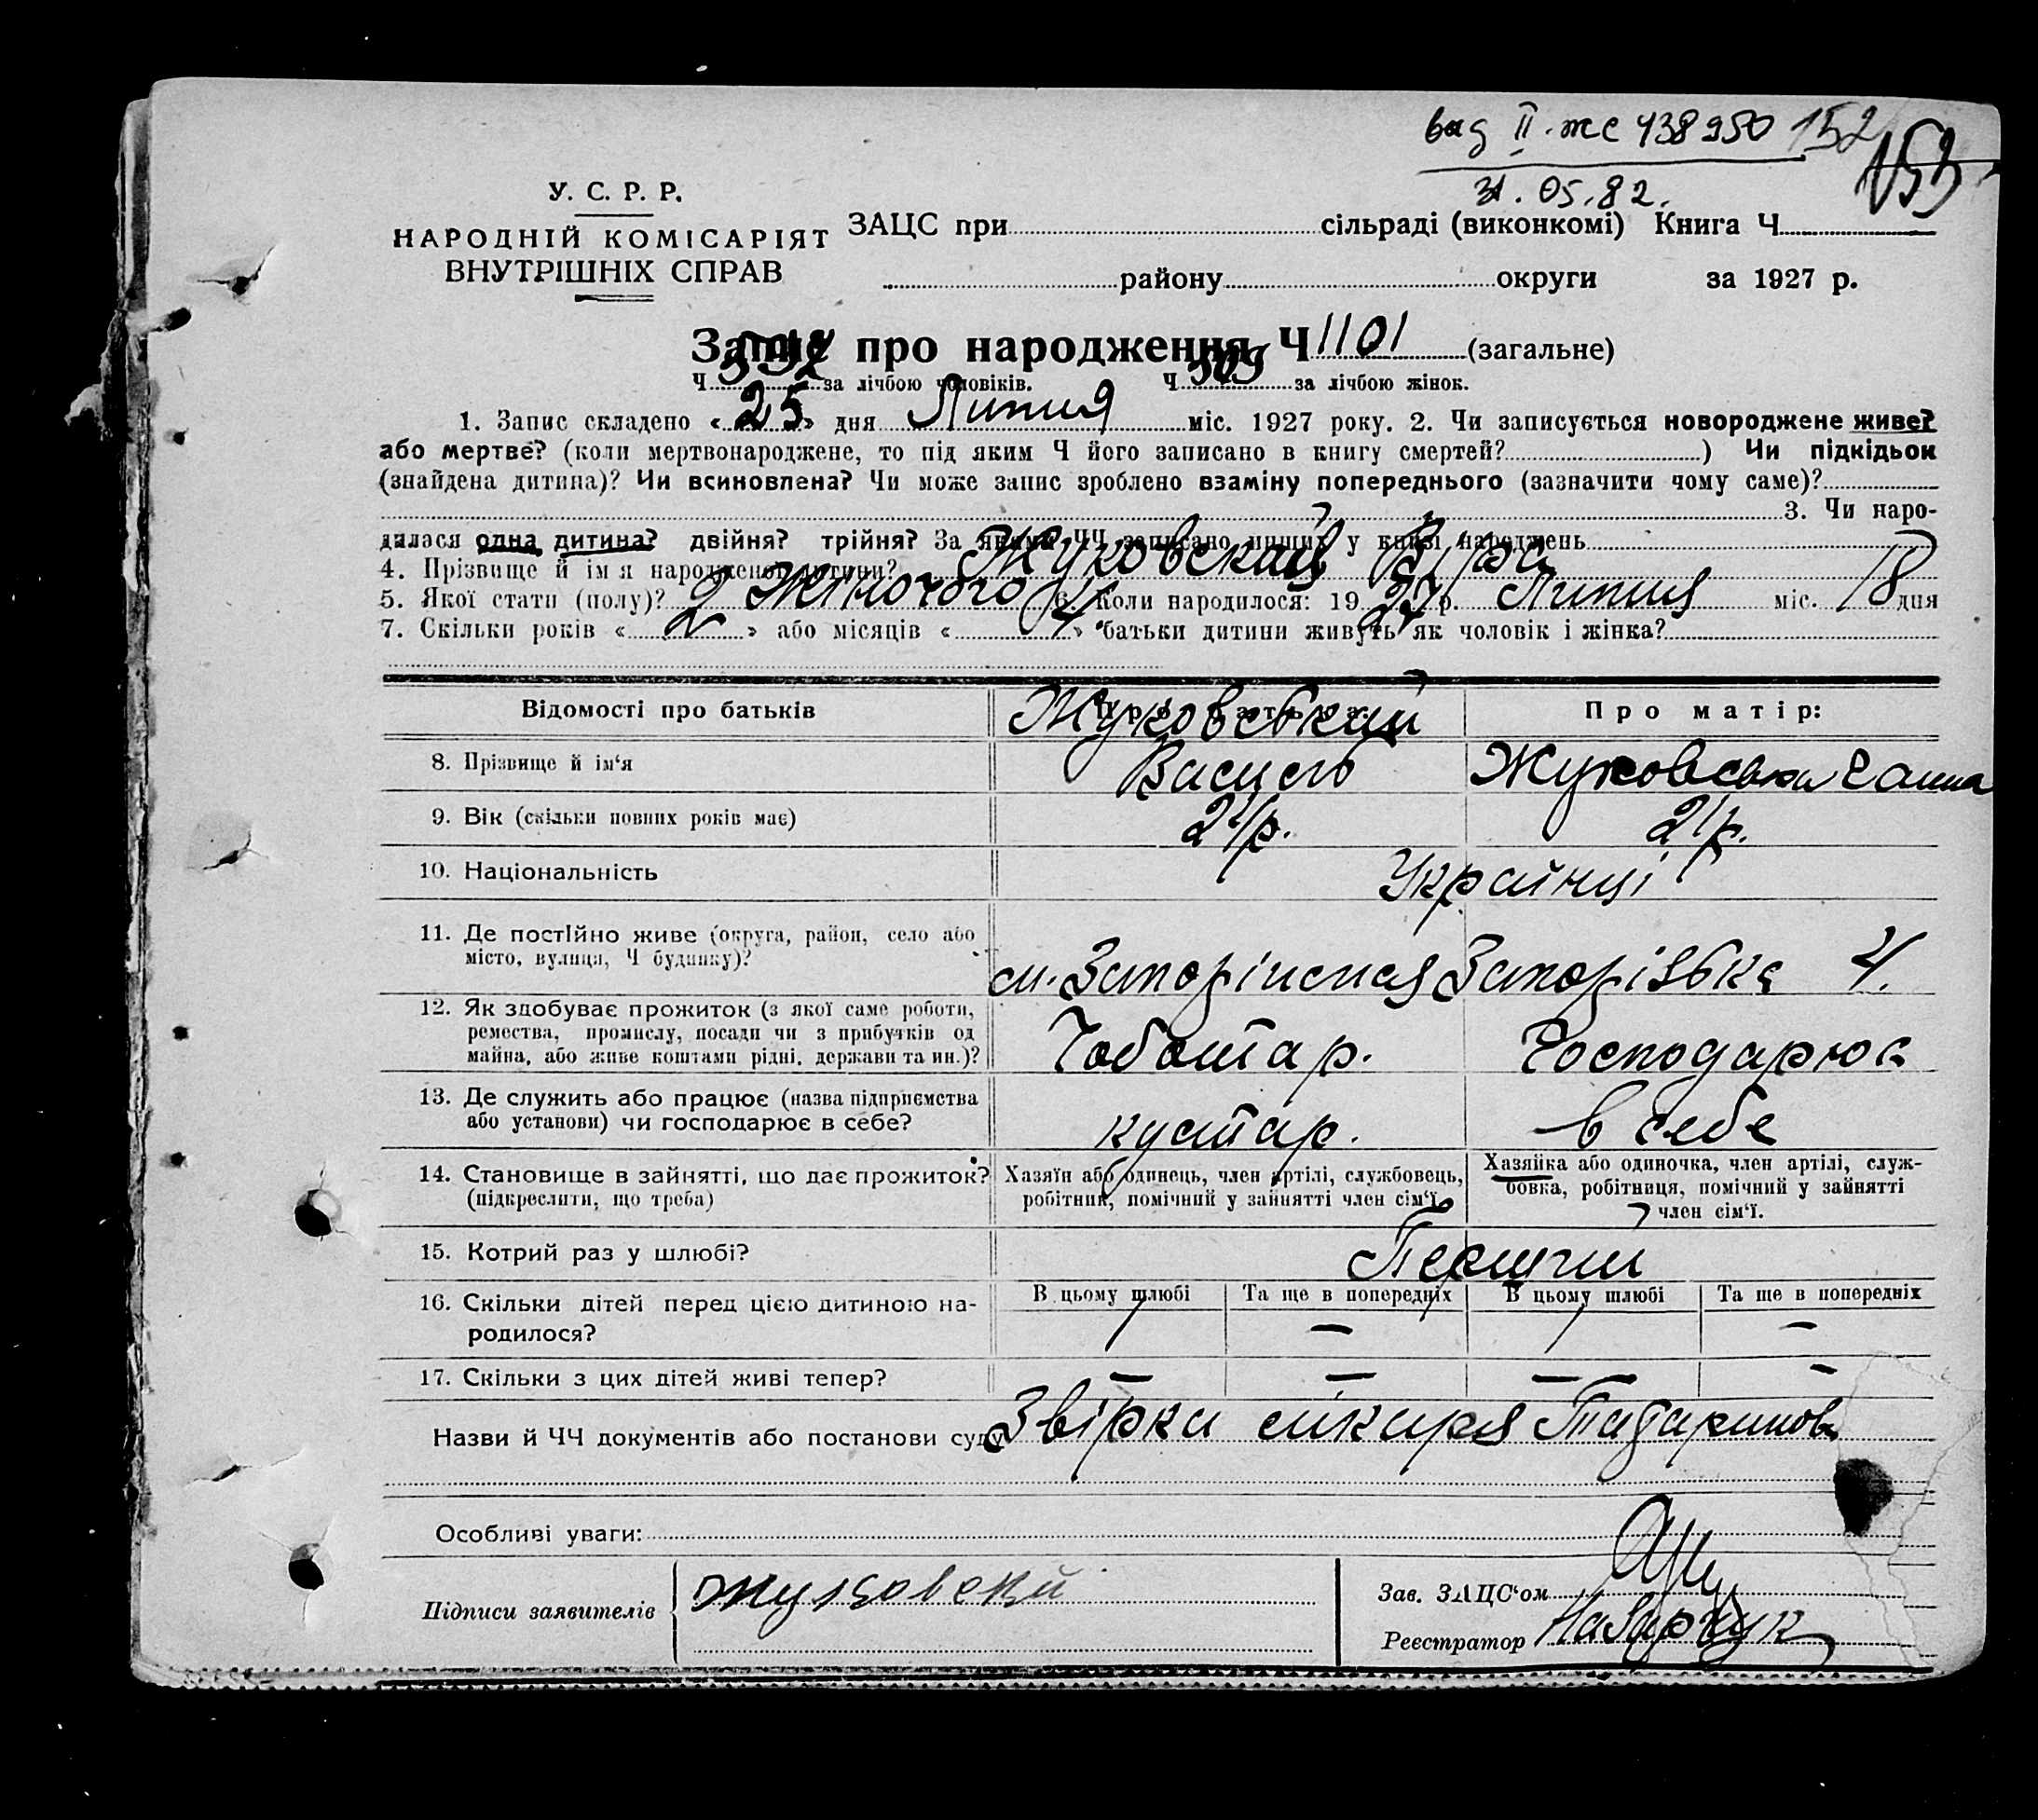 вид II-ЖС 438950 152
153
31.05.82.
У. С. Р. Р.
НАРОДНІЙ КОМІСАРІЯТ
ВНУТРІШНІХ СПРАВ
ЗАЦС при сільраді (виконкомі) Книга Ч
району округи за 1927 р.
Запис про народження Ч 1101 (загальне)
Ч 592 за лічбою чоловіків. Ч 509 за лічбою жінок.
1. Запис складено « 25 » дня Липня міс. 1927 року. 2. Чи записується новороджене живе?
або мертве? (коли мертвонароджене, то під яким Ч його записано в книгу смертей? ) Чи підкідьок
(знайдена дитина)? Чи всиновлена? Чи може запис зроблено взаміну попереднього (зазначити чому саме)?
3. Чи наро-
дилася одна дитина? двійня? трійня? За якими ЧЧ записано инших у книзі народжень
4. Прізвище й ім'я народженої дитини? Жуковская Віра
5. Якої стати (полу)? Жіночого 6. Коли народилося: 1927 р. Липня міс. 18 дня
7. Скільки років « 2 » або місяців « 4 » батьки дитини живуть як чоловік і жінка?
Відомості про батьків Про батька: Про матір:
Жуковський
8. Прізвище й ім'я Василь Жуковська Ганна
9. Вік (скільки повних років має) 21р. 21р.
10. Національність Українці
11. Де постійно живе (округа, район, село або
місто, вулиця, Ч будинку)? м. Запоріжжя Запорізька 4.
12. Як здобуває прожиток (з якої саме роботи,
ремества, промислу, посади чи з прибутків од
майна, або живе коштами рідні, держави та ин.)? Чоботар. Господарює
13. Де служить або працює (назва підприємства
або установи) чи господарює в себе? кустар. в себе
14. Становище в зайнятті, що дає прожиток?
(підкреслити, що треба)
Хазяїн або одинець, член артілі, службовець,
робітник, помічний у зайнятті член сім'ї.
Хазяйка або одиночка, член артілі, служ-
бовка, робітниця, помічний у зайнятті
член сім'ї.
15. Котрий раз у шлюбі? Перший
16. Скільки дітей перед цією дитиною на-
родилося?
В цьому шлюбі Та ще в попередніх В цьому шлюбі Та ще в попередніх
1 — 1 —
17. Скільки з цих дітей живі тепер? — — — —
Назви й ЧЧ документів або постанови суду Звірка лікаря
Особливі уваги:
Підписи заявителів Жуковский
Зав. ЗАЦС'ом
Реєстратор